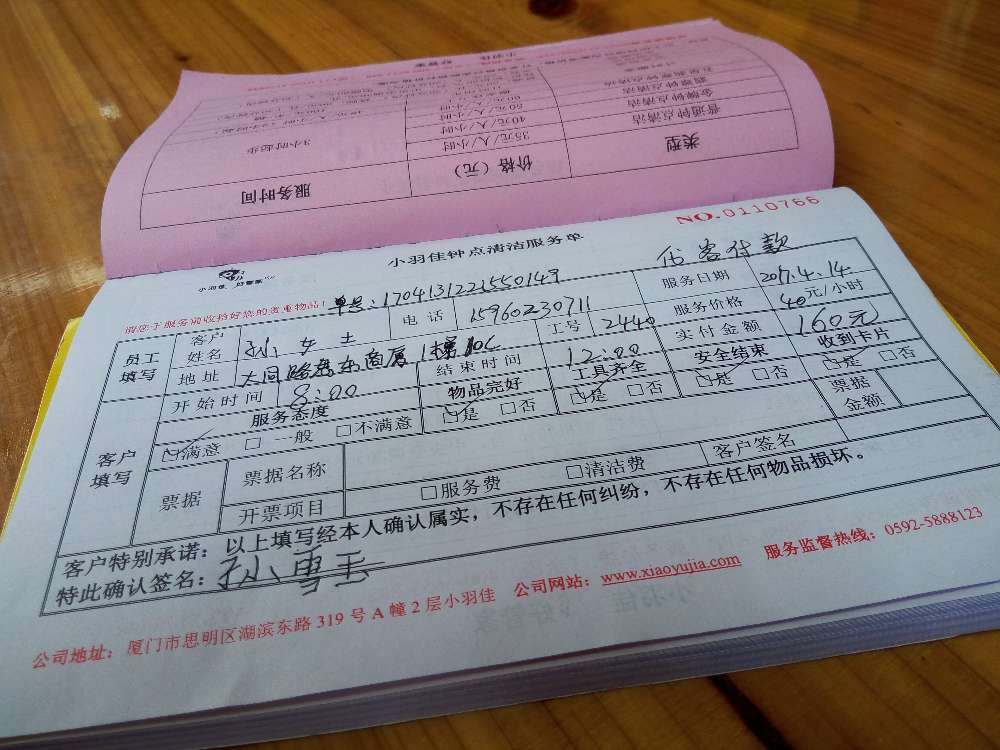 类型
价格（元）
服务时间
普通钟点清洁
35元/人/小时
3小时起步
金牌钟点清洁
40元/人/小时
50元/人/小时
60元/人/小时
NO.0110766
小羽佳钟点清洁服务单
小羽佳 好管家
请您于服务前收拾好您的贵重物品！
单号：1704131221550149
代客付款
员工填写
客户姓名
孙女士
电话
15960230711
服务日期
2017.4.14
地址
1栋10C
工号
2440
服务价格
40元/小时
开始时间
8:00
结束时间
12:00
实付金额
160元
客户填写
服务态度
物品完好
工具齐全
安全结束
收到卡片
☑满意 □一般 □不满意
☑是 □否
☑是 □否
☑是 □否
☑是 □否
票据
票据名称
票据金额
开票项目
□服务费 □清洁费
客户签名
客户特别承诺：以上填写经本人确认属实，不存在任何纠纷，不存在任何物品损坏。
特此确认签名：孙雪玉
公司地址：厦门市思明区湖滨东路319号A幢2层小羽佳 公司网站：www.xiaoyujia.com 服务监督热线：0592-5888123